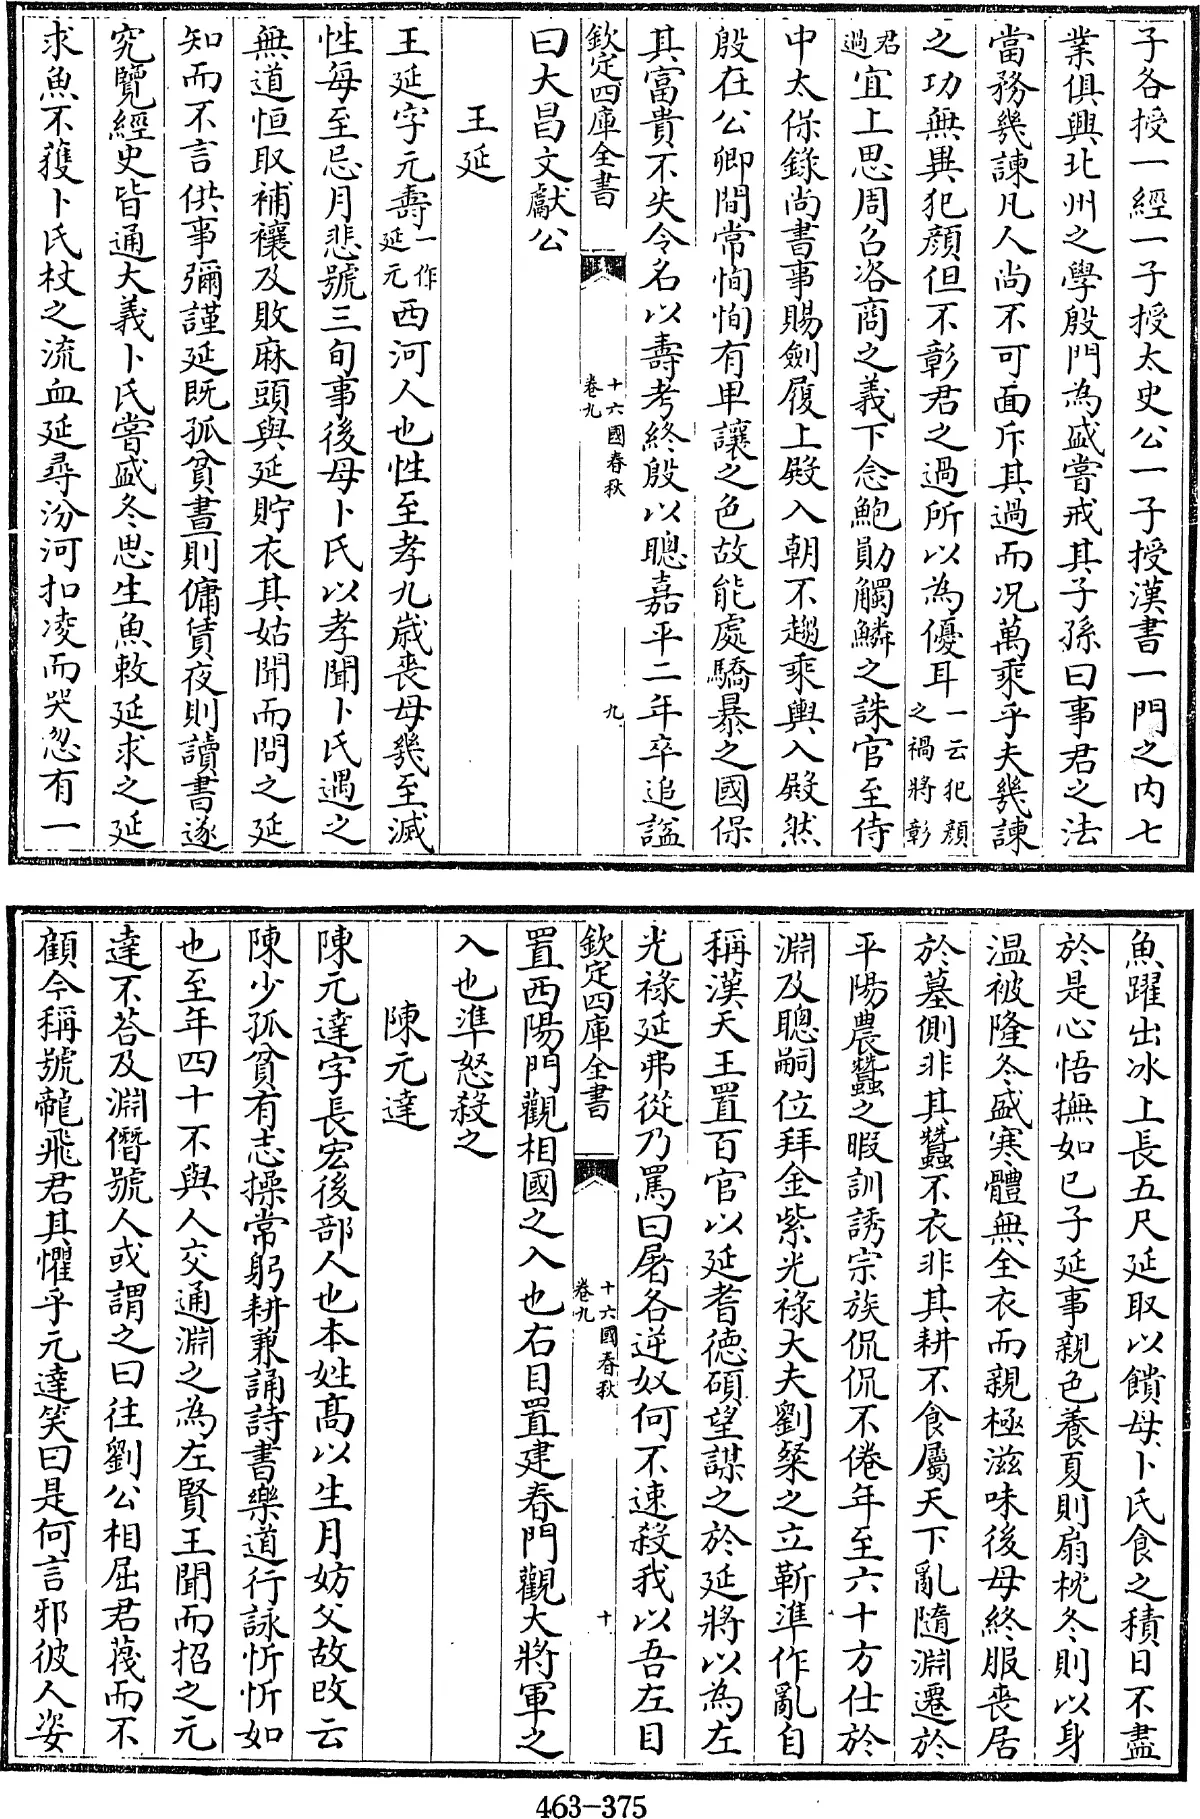 子各授一經一子授太史公一子授漢書一門之内七
業俱興北州之學殷門為盛嘗戒其子孫曰事君之法
當務幾諫凡人尚不可面斥其過而况萬乘乎夫幾諫
之功無異犯顔但不彰君之過所以為優耳一云犯顔之禍將彰
君過宜上思周召咨商之義下念鮑勛觸鱗之誅官至侍
中太保錄尚書事賜劍履上殿入朝不趨乘輿入殿然
殷在公卿間常恂恂有卑讓之色故能處驕暴之國保
其富貴不失令名以壽考終殷以聰嘉平二年卒追諡
欽定四庫全書
十六國春秋
卷九
九
曰大昌文獻公
王延
王延字元壽一作延元西河人也性至孝九歲喪母幾至滅
性每至忌月悲號三旬事後母卜氏以孝聞卜氏遇之
無道恒取補穰及敗麻頭與延貯衣其姑聞而問之延
知而不言供事彌謹延既孤貧晝則傭賃夜則讀書遂
究覽經史皆通大義卜氏嘗盛冬思生魚敕延求之延
求魚不獲卜氏杖之流血延尋汾河扣凌而哭忽有一
魚躍出冰上長五尺延取以饋母卜氏食之積日不盡
於是心悟撫如己子延事親色養夏則扇枕冬則以身
温被隆冬盛寒體無全衣而親極滋味後母終服喪居
於墓側非其蠶不衣非其耕不食屬天下亂隨淵遷於
平陽農蠶之暇訓誘宗族侃侃不倦年至六十方仕於
淵及聰嗣位拜金紫光祿大夫劉粲之立靳準作亂自
稱漢天王置百官以延耆德碩望謀之於延將以為左
光祿延弗從乃罵曰屠各逆奴何不速殺我以吾左目
欽定四庫全書
十六國春秋
卷九
十
置西陽門觀相國之入也右目置建春門觀大將軍之
入也準怒殺之
陳元達
陳元達字長宏後部人也本姓髙以生月妨父故改云
陳少孤貧有志操常躬耕兼誦詩書樂道行詠忻忻如
也至年四十不與人交通淵之為左賢王聞而招之元
達不荅及淵僭號人或謂之曰往劉公相屈君蔑而不
顧今稱號龍飛君其懼乎元達笑曰是何言邪彼人姿
463-375